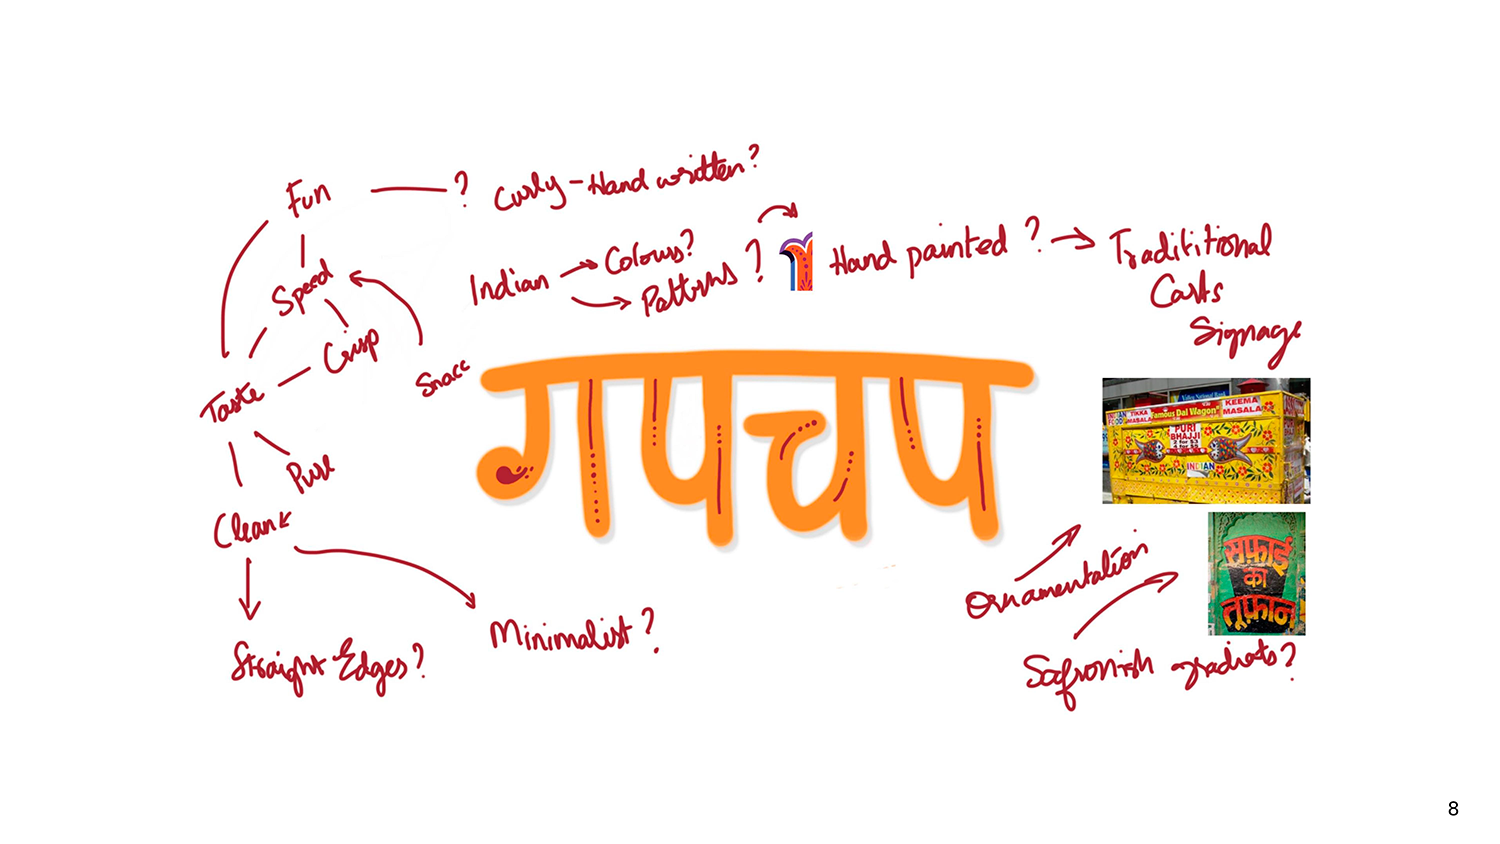 Fun
? Curly - Hand written?
Speed
Indian
Colours?
Patterns?
Hand painted?
Tradititional
Carts
Signage
Crisp
Snacc
Taste
Pure
Clean
गपचप
Famous Dal Wagon
TIKKA
MASALA
KEEMA
MASALA
PURI
BHAJJI
2 for $3
INDIAN
सफ़ाई
का
तूफ़ान
Ornamentation
Minimalist?
Straight Edges?
Safronish gradiats?
8